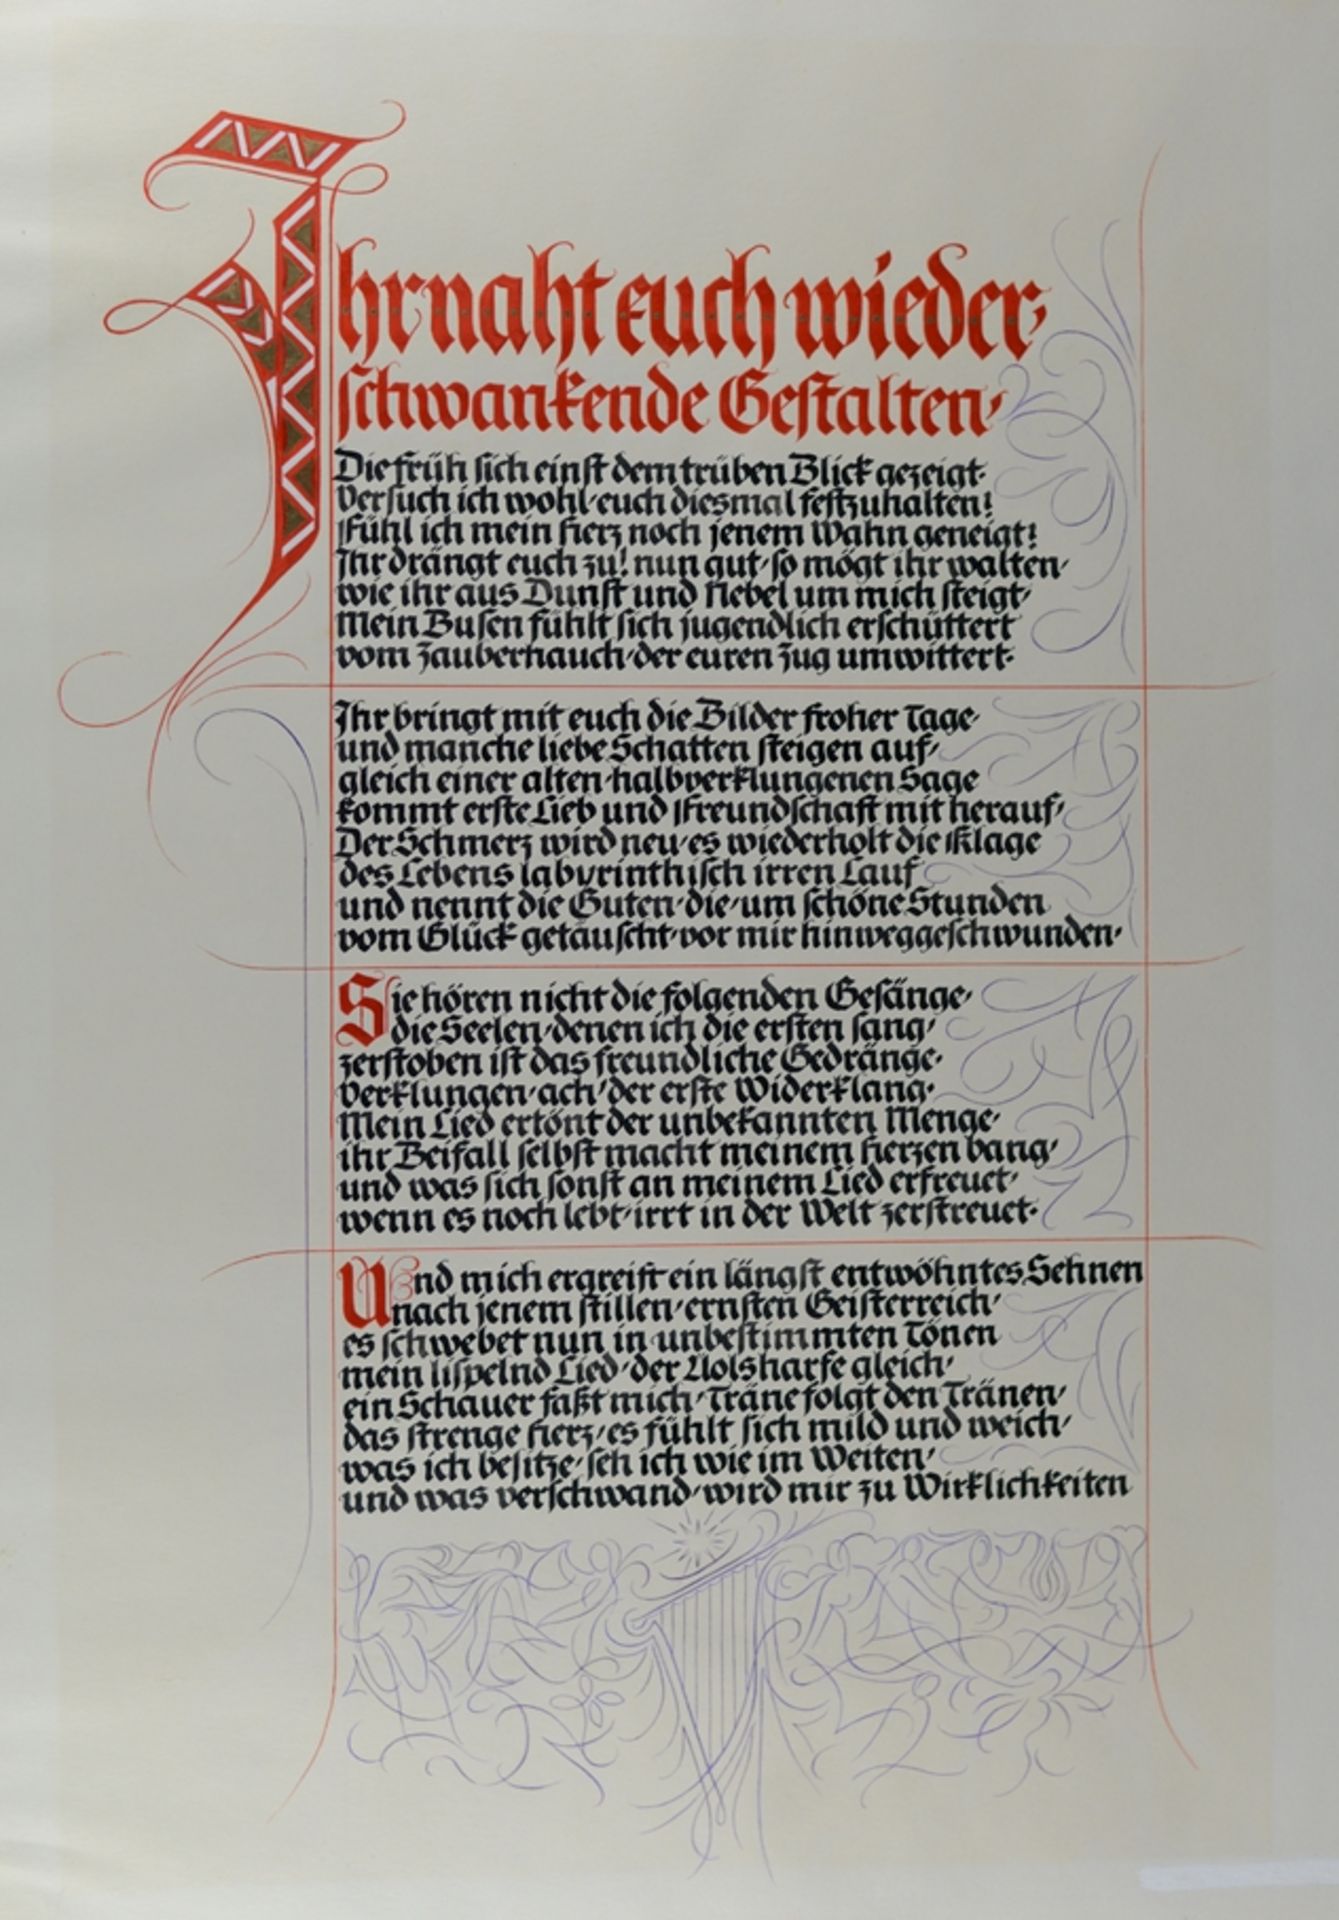 Ihr naht euch wieder,
schwankende Gestalten,
Die früh sich einst dem trüben Blick gezeigt.
Versuch ich wohl, euch diesmal festzuhalten?
Fühl ich mein Herz noch jenem Wahn geneigt?
Ihr drängt euch zu! nun gut, so mögt ihr walten,
wie ihr aus Dunst und Nebel um mich steigt,
Mein Busen fühlt sich jugendlich erschüttert
vom Zauberhauch, der euren Zug umwittert.
Ihr bringt mit euch die Bilder froher Tage,
und manche liebe Schatten steigen auf,
gleich einer alten, halbverklungenen Sage
kommt erste Lieb und Freundschaft mit herauf,
Der Schmerz wird neu, es wiederholt die Klage
des Lebens labyrinthisch irren Lauf
und nennt die Guten, die, um schöne Stunden
vom Glück getäuscht, vor mir hinweggeschwunden.
Sie hören nicht die folgenden Gesänge,
die Seelen, denen ich die ersten sang,
zerstoben ist das freundliche Gedränge,
verklungen, ach, der erste Widerklang.
Mein Lied ertönt der unbekannten Menge,
ihr Beifall selbst macht meinem Herzen bang,
und was sich sonst an meinem Lied erfreuet,
wenn es noch lebt, irrt in der Welt zerstreuet.
Und mich ergreift ein längst entwöhntes Sehnen
nach jenem stillen, ernsten Geisterreich,
es schwebet nun in unbestimmten Tönen
mein lispelnd Lied, der Äolsharfe gleich,
ein Schauer faßt mich, Träne folgt den Tränen,
das strenge Herz, es fühlt sich mild und weich,
was ich besitze, seh ich wie im Weiten,
und was verschwand, wird mir zu Wirklichkeiten